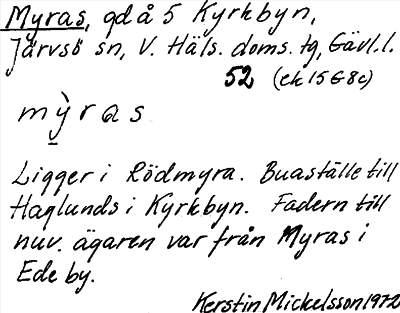 Myras, gdå 5 Kyrkbyn,
Järvsö sn, V. Häls. doms. tg, Gävl. l.
52 (ek 15G8c)
mỳras
Ligger i Rödmyra. Buaställe till
Haglunds i Kyrkbyn. Fadern till
nuv. ägaren var från Myras i
Ede by.
Kerstin Mickelsson 1972